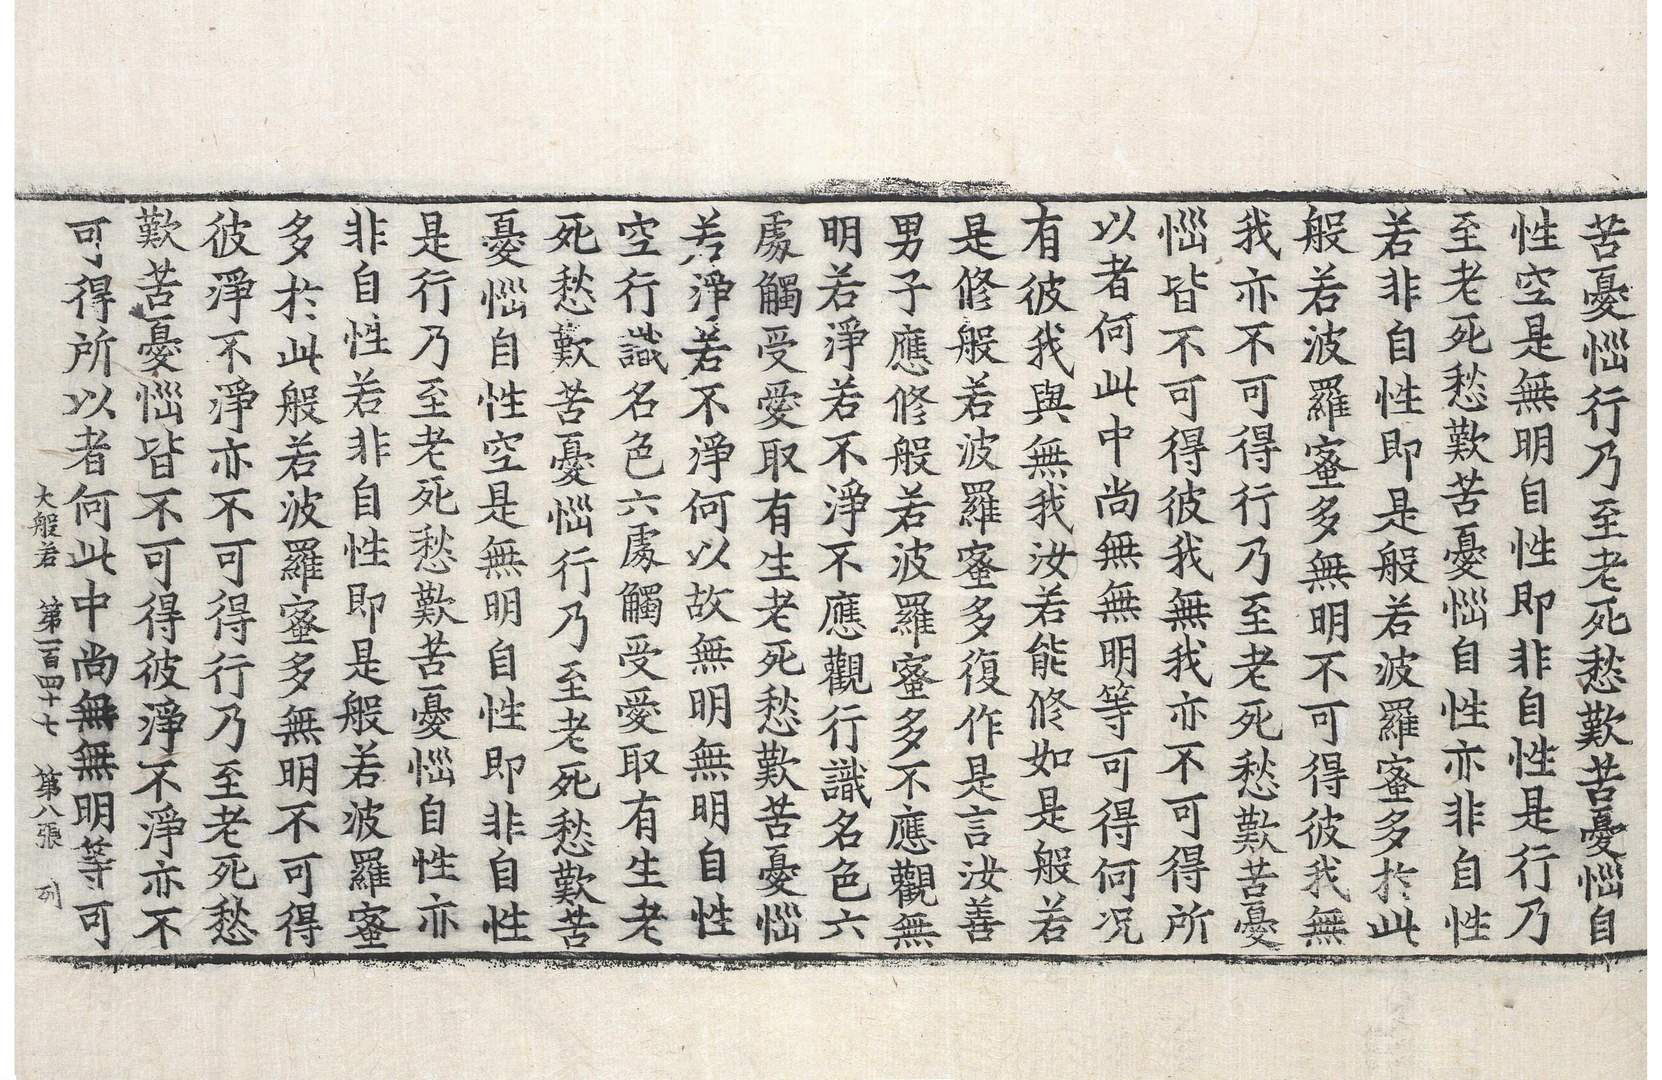 苦憂惱行乃至老死愁歎苦憂惱自
性空是無明自性即非自性是行乃
至老死愁歎苦憂惱自性亦非自性
若非自性即是般若波羅蜜多於此
般若波羅蜜多無明不可得彼我無
我亦不可得行乃至老死愁歎苦憂
惱皆不可得彼我無我亦不可得所
以者何此中尚無無明等可得何況
有彼我與無我汝若能修如是般若
是修般若波羅蜜多復作是言汝善
男子應修般若波羅蜜多不應觀無
明若淨若不淨不應觀行識名色六
處觸受愛取有生老死愁歎苦憂惱
若淨若不淨何以故無明無明自性
空行識名色六處觸受愛取有生老
死愁歎苦憂惱行乃至老死愁歎苦
憂惱自性空是無明自性即非自性
是行乃至老死愁歎苦憂惱自性亦
非自性若非自性即是般若波羅蜜
多於此般若波羅蜜多無明不可得
彼淨不淨亦不可得行乃至老死愁
歎苦憂惱皆不可得彼淨不淨亦不
可得所以者何此中尚無無明等可
大般若 第一百四十七 第八張 列